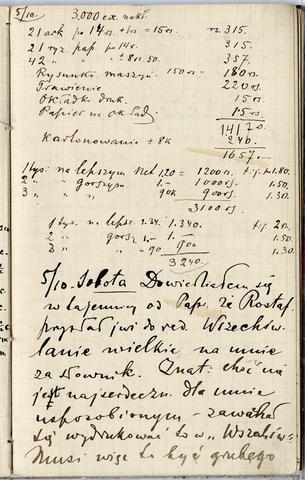 5/10. 3,000 ex. nakł.
21 ark po 14rs. + 1rs = 15rs. rs. 315.
21 ryz. pap. po 14r. 315.
42 " " ± 8rs.50. 357.
Rysunki maszyn. 150rs = 180rs.
Trawienie 220rs.
Okładk. druk. 15rs.
Papier na okład. 15rs.
1417rs.
Kartonowanie ± 8k 240.
1657.-
1 tys. na lepszym net 1,20 = 1200rs. t.j. 1.80.
2 " " gorszym. 1.- 1000rs. 1.50.
3 " " " 90k 900rs. 1.30.
3100rs
1 tys. na lepsz. 1.34. 1.340. t.j. 2rs.
2 " " gorsz. 1.- 1.- 1.50.
3 " " " - 90 900 1.30.
3240.
5/10. Sobota Dowiedziałem się
w tajemnicy od Pap. że Rostaf.
przysłał już do red. Wszechśw.
łanie wielkie na mnie
za słownik. Znat. choć na
jest najserdeczn. dla mnie
usposobionym - zawahał
się wydrukować to w „Wszechśw."
Musi więc to być grubego